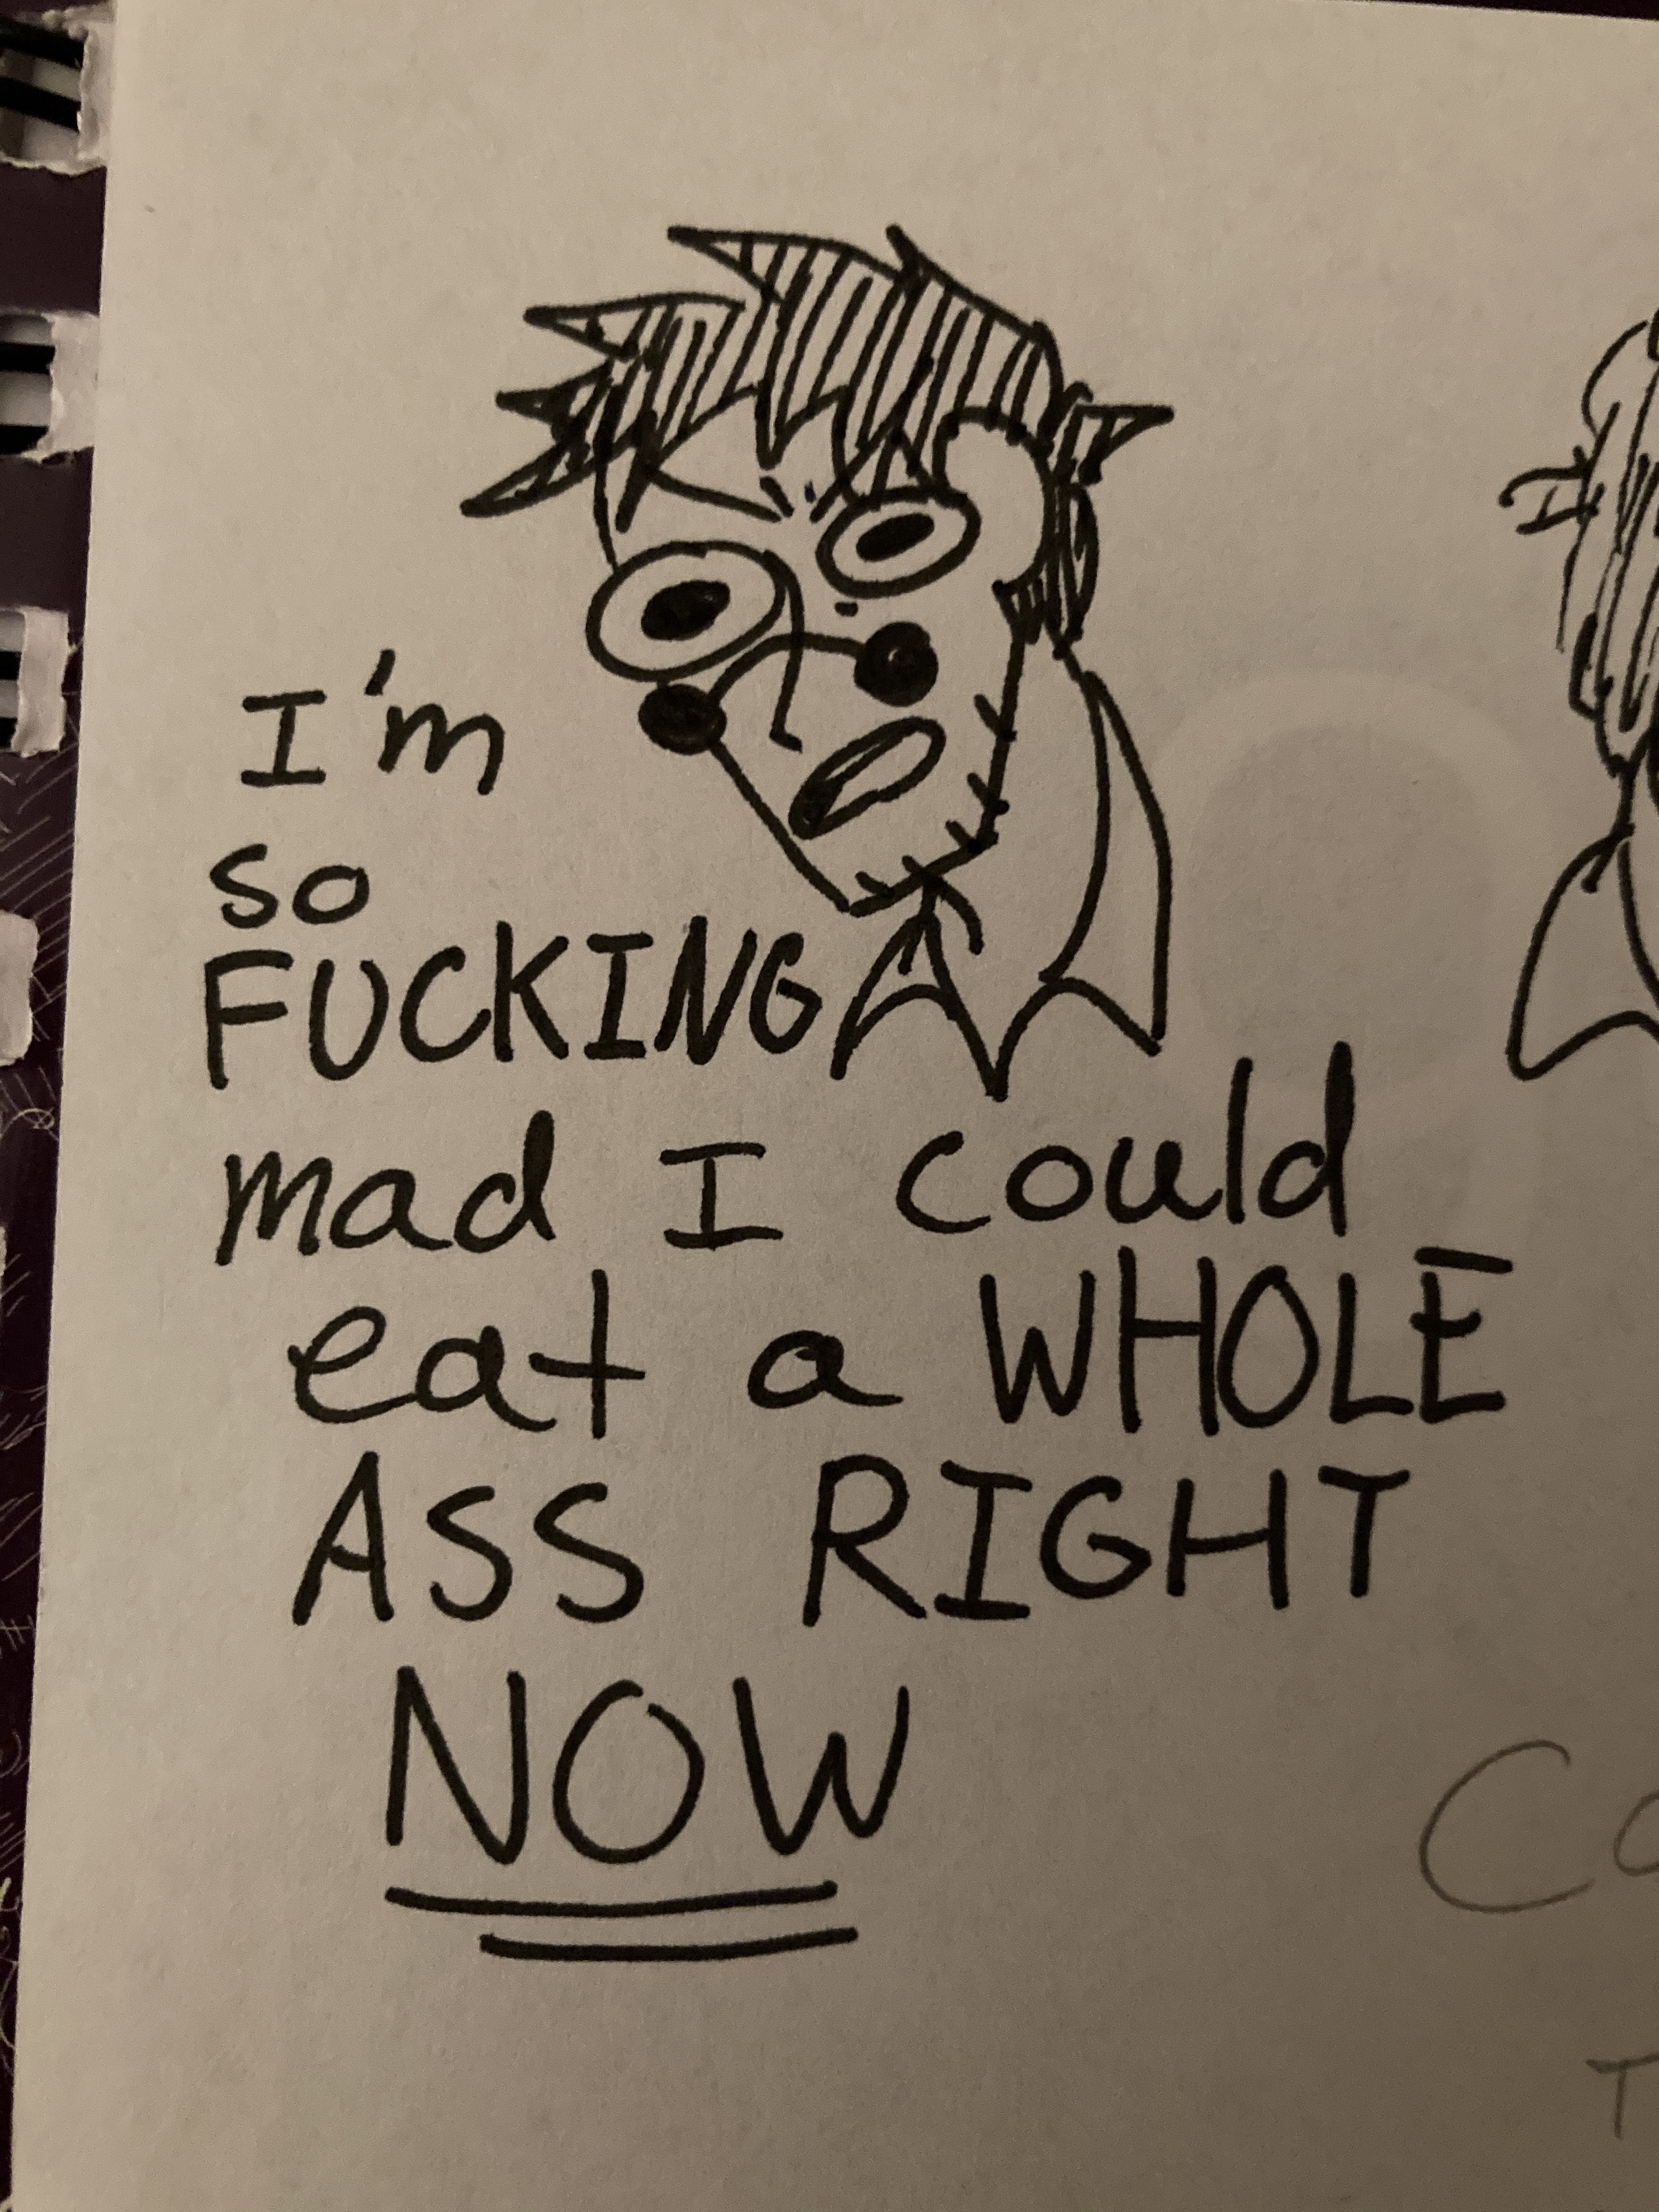 I'm
so
FUCKING
mad I could
eat a WHOLE
ASS RIGHT
NOW